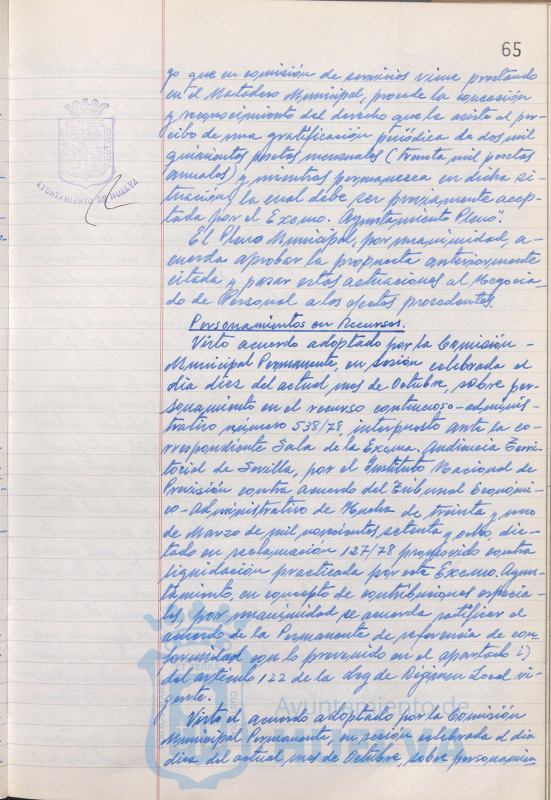 65
go que en comisión de servicios viene prestando
en el Matadero Municipal, procede la concesión
y reconocimiento del derecho que le asiste al per-
cibo de una gratificación periódica de dos mil
quinientas pesetas mensuales (treinta mil pesetas
anuales) y mientras permanezca en dicha si-
tuación, la cual debe ser previamente acep-
tada por el Excmo. Ayuntamiento Pleno".
El Pleno Municipal, por unanimidad, a-
cuerda aprobar la propuesta anteriormente
citada y pasar estas actuaciones al Negocia-
do de Personal a los efectos procedentes.
Personamientos en Recursos.
Visto acuerdo adoptado por la Comisión
Municipal Permanente, en sesión celebrada el
día diez del actual mes de Octubre, sobre per-
sonamiento en el recurso contencioso-adminis-
trativo número 538/78, interpuesto ante la co-
rrespondiente Sala de la Excma. Audiencia Terri-
torial de Sevilla, por el Instituto Nacional de
Previsión contra acuerdo del Tribunal Económi-
co-administrativo de Huelva de treinta y uno
de Marzo de mil novecientos setenta y ocho, dic-
tado en reclamación 127/78 promovido contra
liquidación practicada por este Excmo. Ayun-
tamiento, en concepto de contribuciones especia-
les, por unanimidad se acuerda ratificar el
acuerdo de la Permanente de referencia de con-
formidad con lo prevenido en el apartado i)
del artículo 122 de la Ley de Régimen Local vi-
gente.
Visto el acuerdo adoptado por la Comisión
Municipal Permanente, en sesión celebrada el día
diez del actual mes de Octubre, sobre personamien
AYUNTAMIENTO DE HUELVA
Ayuntamiento de
HUELVA